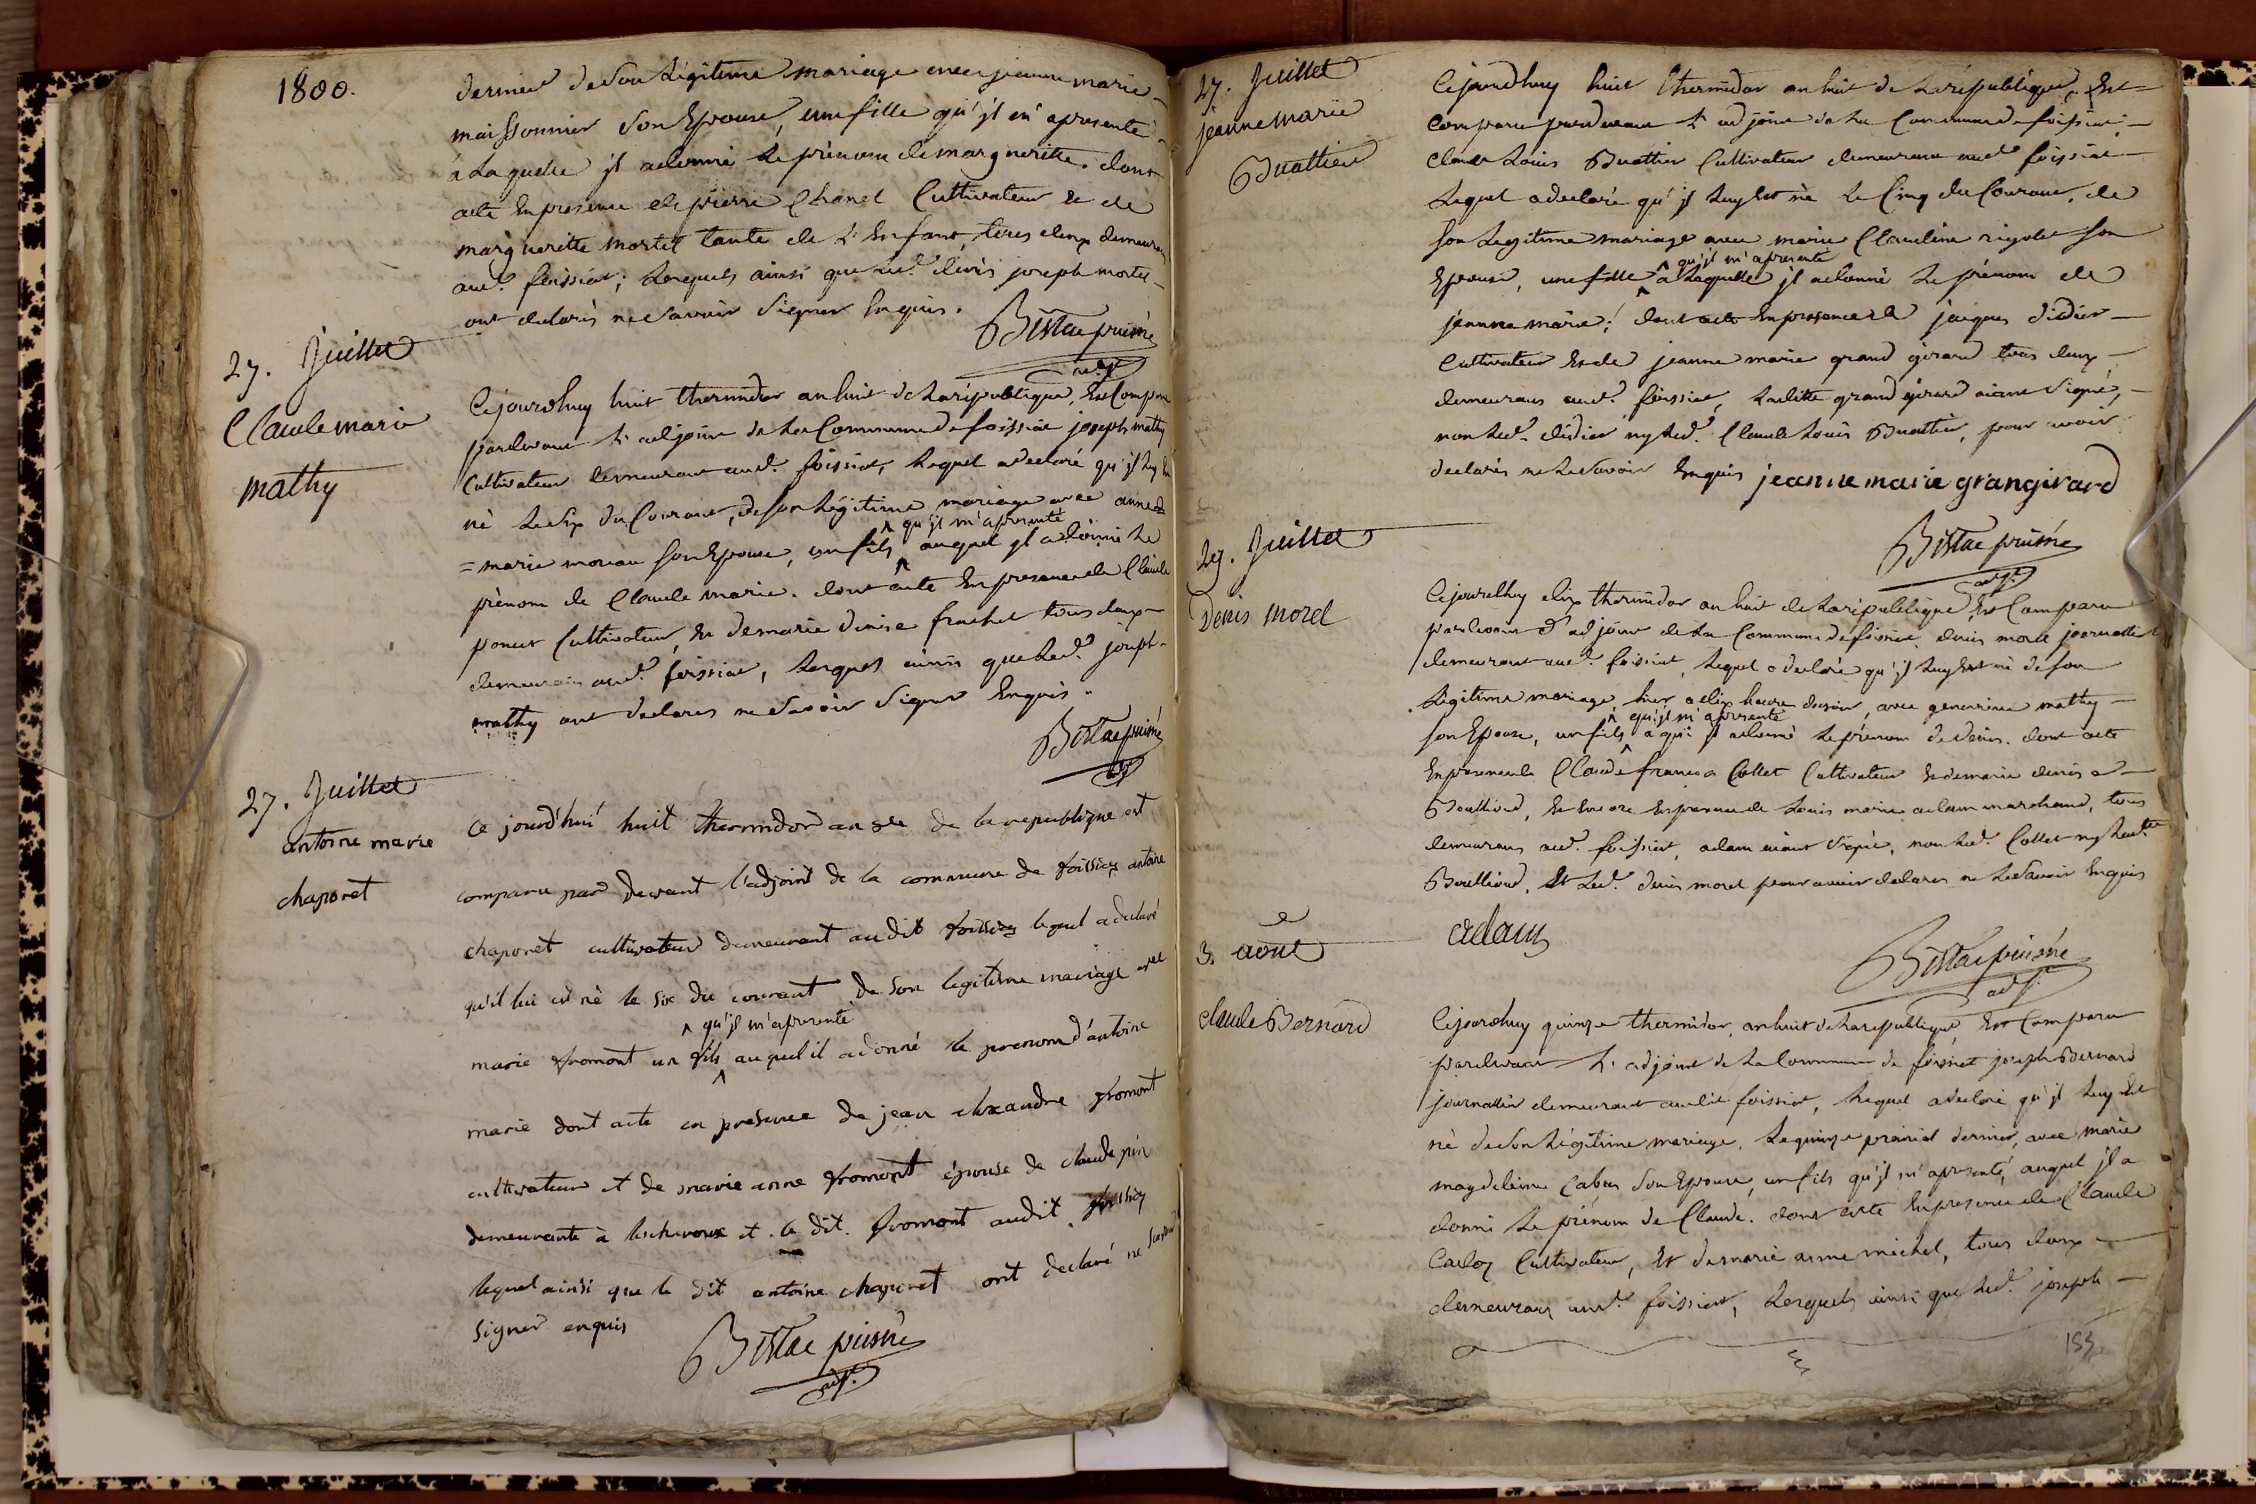 1800.
dernier de son Légitime mariage avec jeanne marie
maissonnier son Epouse, une fille qu'jl m'apresenté
à Laquelle jl adonné Le prénom de margueritte. dont
acte En presence de pierre Chanel Cultivateur et de
margueritte mortel tante de L'Enfant, tous deux demeurans
aud. foissiat; Lesquels ainsi que led. joseph mortel
ont declarés ne Savoir Signer Enquis.
Bistac puisné
adjt
27. Juillet
Claude marie
mathy
Cejourdhuy huit thermidor an huit de La republique, Est Comparu
pardevant L'adjoint de La Commune de foissiat joseph mathy
Cultivateur demeurant aud. foissiat, Lequel adeclaré qu'jl Luy Est
né Le Six du Courant, de son Légitime mariage avec anne
qu'jl m'apresenté
= marie moreau son Epouse, un fils auquel jl adonné Le
prénom de Claude marie. dont acte En presence de Claude
poncet Cultivateur, Et de marie denise frachet tous deux
demeurans aud. foissiat, Lesquels ainsi que Led. joseph
mathy ont declarés ne Savoir Signer Enquis.
Bistac puisné
adjt
27. Juillet
antoine marie
chaponet
Ce jourd'hui huit thermidor an de la republique est
comparu par devant l'adjoint de la commune de foissiat antoine
chaponet cultivateur demeurant audit foissiat lequel a declaré
qu'il lui est né le six du courant de son legitime mariage avec
qu'jl m'apresenté
marie fromont un fils auquel il a donné le prenom d'antoine
marie dont acte en presence de jean alexandre fromont
cultivateur et de marie anne fromont épouse de claude pin
demeurante à lescheroux et le dit fromont audit foissiat
lequel ainsi que le dit antoine chaponet ont declaré ne
signer enquis
Bistac puisné
adjt.
27. Juillet
jeanne marie
Buattier
Cejourdhuy huit thermidor an huit de La république, Est
comparu pardevant L'adjoint de La Commune de foissiat
Claude Louis Buattier Cultivateur demeurant aud. foissiat
Lequel adeclaré qu'jl Luy Est né Le Cinq du Courant, de
son Légitime mariage avec marie Claudine rigolet son
qu'jl m'apresenté
Epouse, une fille à Laquelle jl adonné Le prénom de
jeanne marie; dont acte En presence de jacques didier
Cultivateur Et de jeanne marie grand girard tous deux
demeurans aud. foissiat, Laditte grand girard aiant Signé,
non Led. didier ny Led. Claude Louis Buattier, pour avoir
declarés ne Le Savoir Enquis jeanne marie grangirard
Bistac puisné
adjt.
29. Juillet
Denis morel
Cejourdhuy dix thermidor an huit de La republique, Est Comparu
pardevant L'adjoint de La Commune de foissiat denis morel journallier
demeurant aud. foissiat, Lequel a declaré qu'jl Luy Est né de son
Légitime mariage, hier a dix heures du soir, avec genevieve mathy
qu'jl m'apresenté
son Epouse, un fils a qui jl adonné Le prénom de denis. dont acte
En presence de Claude françois Collet Cultivateur Et de marie denise
Bouilloud, Et Encore En presence de Louis marie adam marchand, tous
demeurans aud. foissiat, adam aiant Signé, non Led. Collet ny Lad.te
Bouilloud, Et Led. denis morel pour avoir declarés ne Le Savoir Enquis
adam
Bistac puisné
adjt.
3 août
claude Bernard
Cejourdhuy quinze thermidor, an huit de La republique, Est Comparu
pardevant L'adjoint de La Commune de foissiat joseph Bernard
journallier demeurant audit foissiat, Lequel adeclaré qu'jl Luy Est
né de son Légitime mariage, Le quinze prairial dernier, avec marie
magdeleine son Epouse, un fils qu'jl m'apresenté, auquel jl a
donné Le prénom de Claude. dont acte En presence de Claude
Cultivateur, Et de marie anne michel, tous deux
demeurans aud. foissiat, Lesquels ainsi que Led. joseph
153